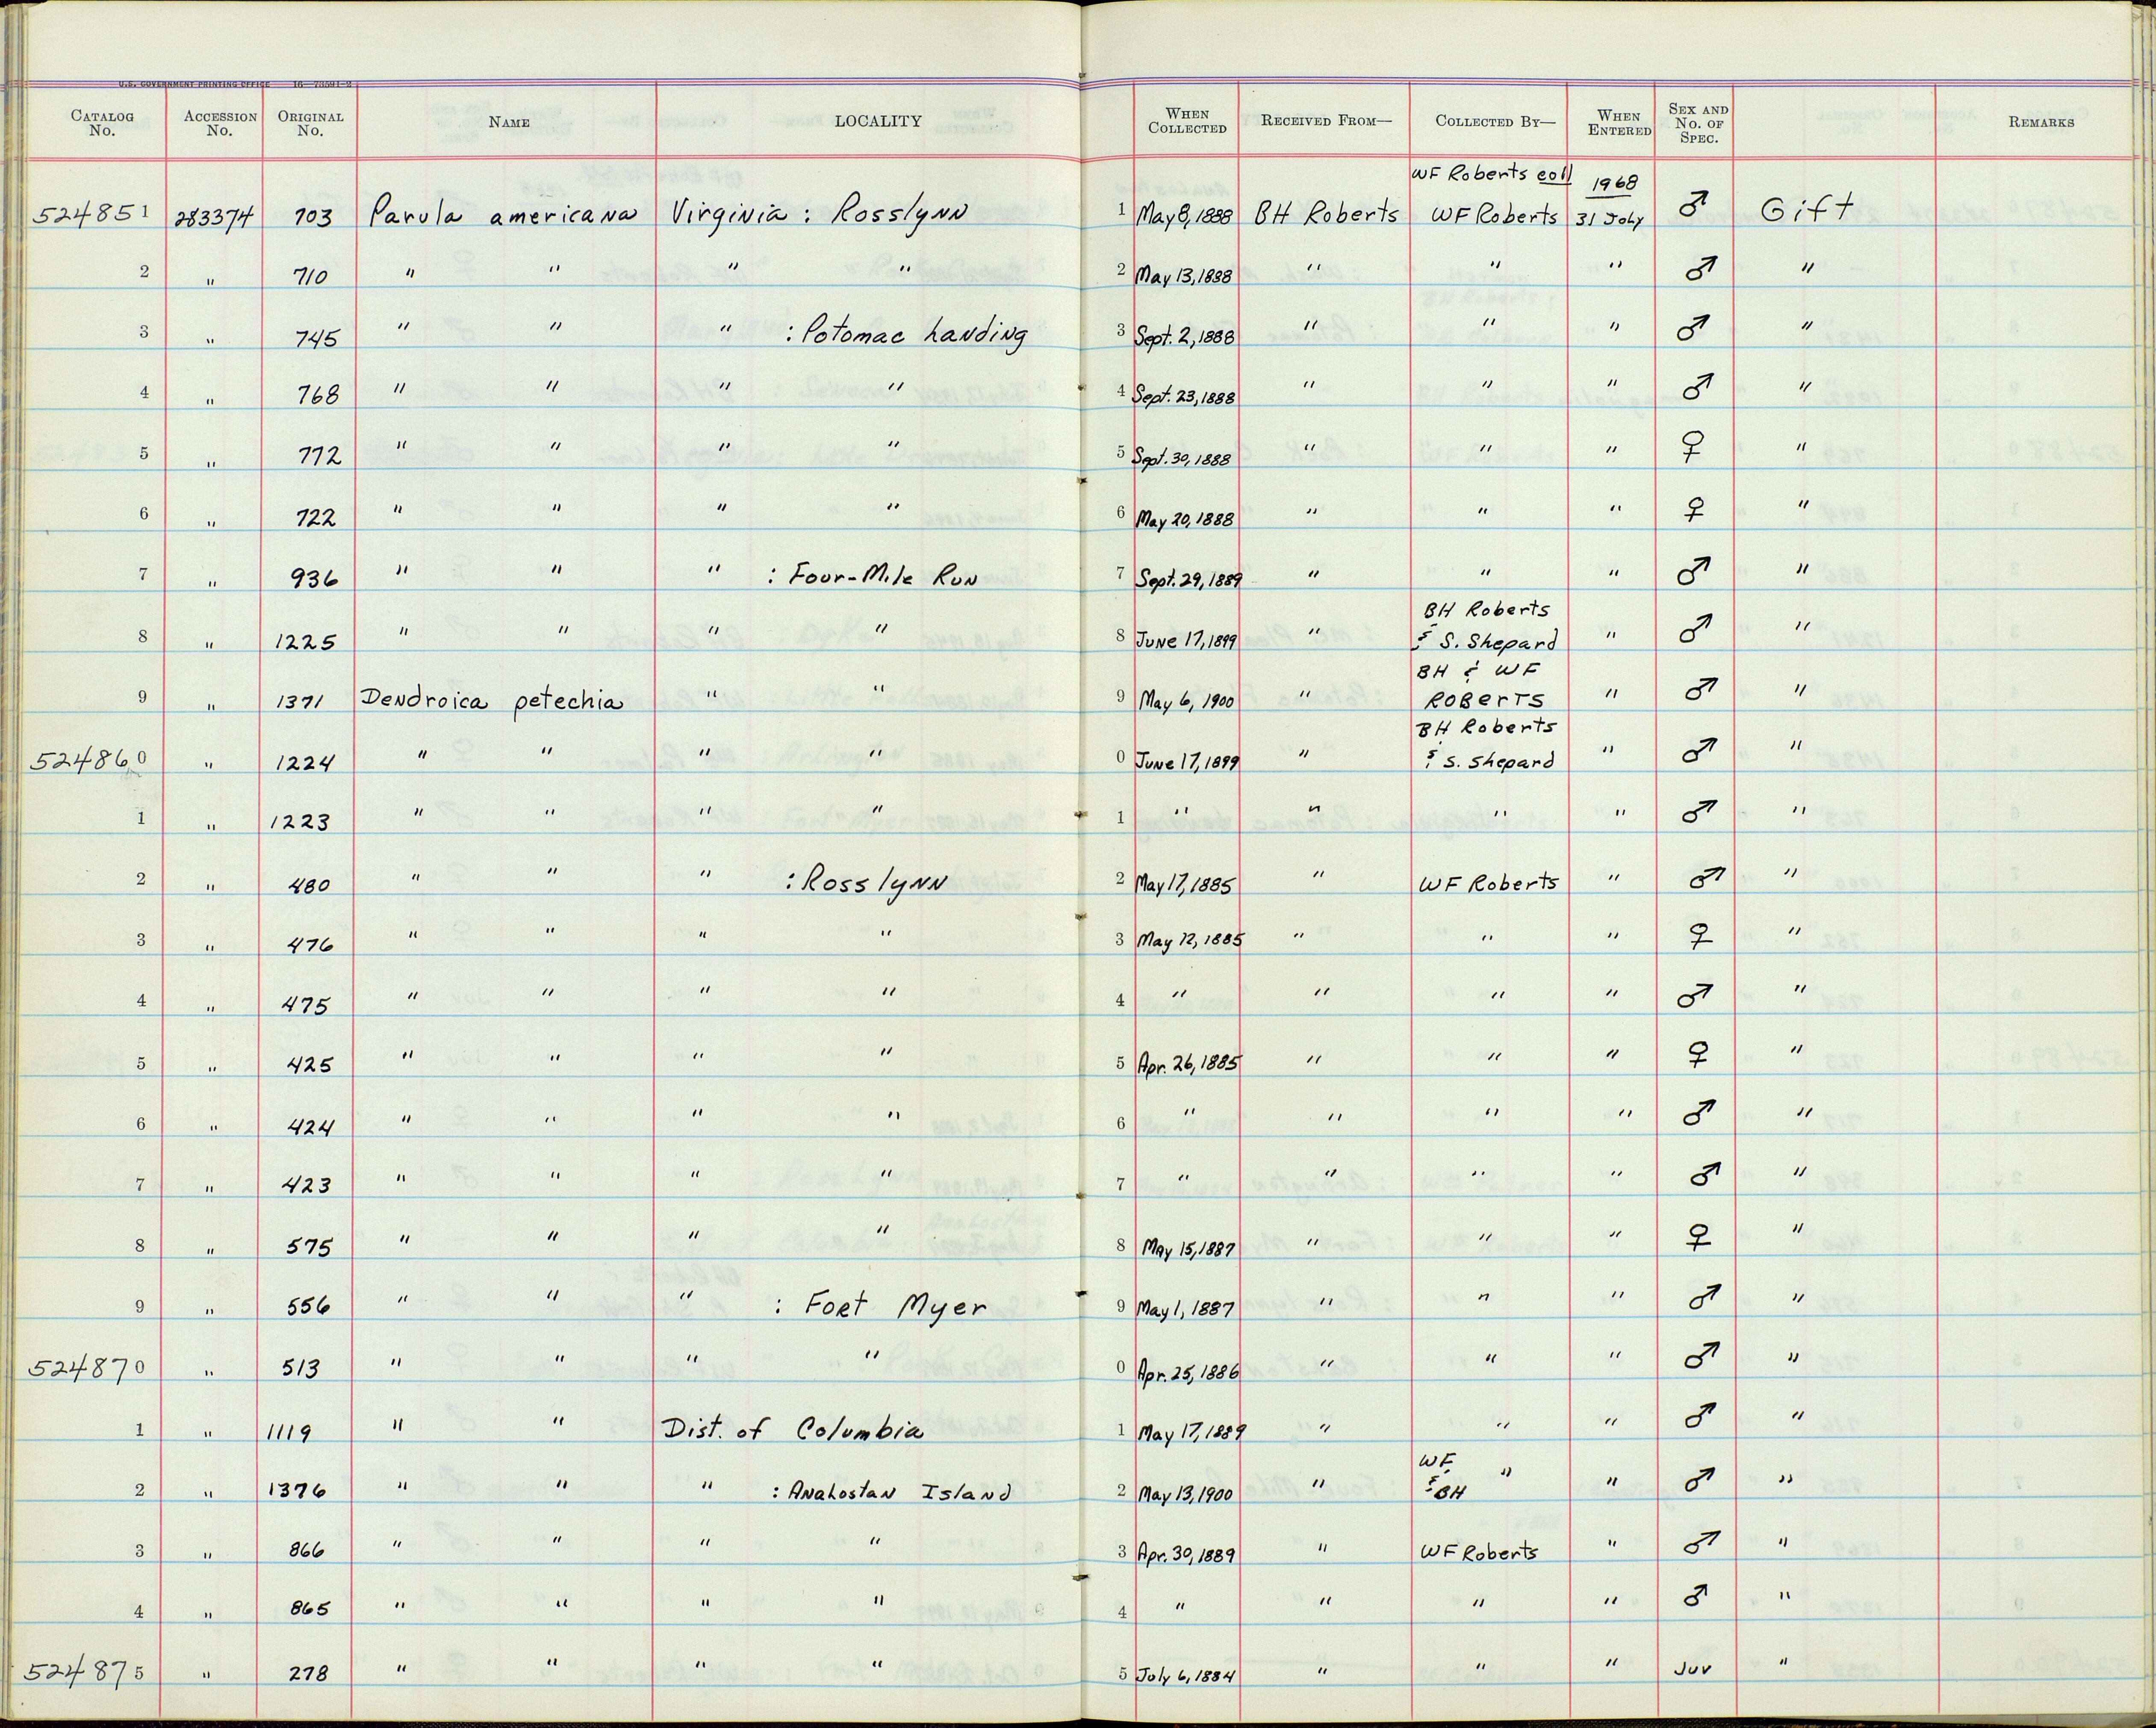 U.S. GOVERNMENT PRINTING OFFICE 16—73591-2
CATALOG No. ACCESSION No. ORIGINAL No. NAME LOCALITY WHEN COLLECTED RECEIVED FROM— COLLECTED BY— WHEN ENTERED SEX AND No. OF SPEC. REMARKS
WF Roberts coll 1968
524851 283374 703 Parula americana Virginia : Rosslynn 1 May 8, 1888 BH Roberts WF Roberts 31 July ♂ Gift
2 " 710 " " " " 2 May 13, 1888 " " " ♂ "
3 " 745 " " " : Potomac Landing 3 Sept. 2, 1888 " " " ♂ "
4 " 768 " " " " 4 Sept. 23, 1888 " " " ♂ "
5 " 772 " " " " 5 Sept. 30, 1888 " " " ♀ "
6 " 722 " " " " 6 May 20, 1888 " " " ♀ "
7 " 936 " " " : Four-Mile Run 7 Sept. 29, 1889 " " " ♂ "
BH Roberts
8 " 1225 " " " " 8 June 17, 1899 " & S. Shepard " ♂ "
BH & WF
9 " 1371 Dendroica petechia " " 9 May 6, 1900 " Roberts " ♂ "
BH Roberts
524860 " 1224 " " " " 0 June 17, 1899 " & S. Shepard " ♂ "
1 " 1223 " " " " 1 " " " " ♂ "
2 " 480 " " " : Rosslynn 2 May 17, 1885 " WF Roberts " ♂ "
3 " 476 " " " " 3 May 12, 1885 " " " ♀ "
4 " 475 " " " " 4 " " " " ♂ "
5 " 425 " " " " 5 Apr. 26, 1885 " " " ♀ "
6 " 424 " " " " 6 " " " " ♂ "
7 " 423 " " " " 7 " " " " ♂ "
8 " 575 " " " " 8 May 15, 1887 " " " ♀ "
9 " 556 " " " : Fort Myer 9 May 1, 1887 " " " ♂ "
524870 " 513 " " " " 0 Apr. 25, 1886 " " " ♂ "
1 " 1119 " " Dist. of Columbia 1 May 17, 1889 " " " ♂ "
WF
2 " 1376 " " " : Analostan Island 2 May 13, 1900 " & BH " " ♂ "
3 " 866 " " " " 3 Apr. 30, 1889 " WF Roberts " ♂ "
4 " 865 " " " " 4 " " " " ♂ "
524875 " 278 " " " " 5 July 6, 1884 " " " Juv "